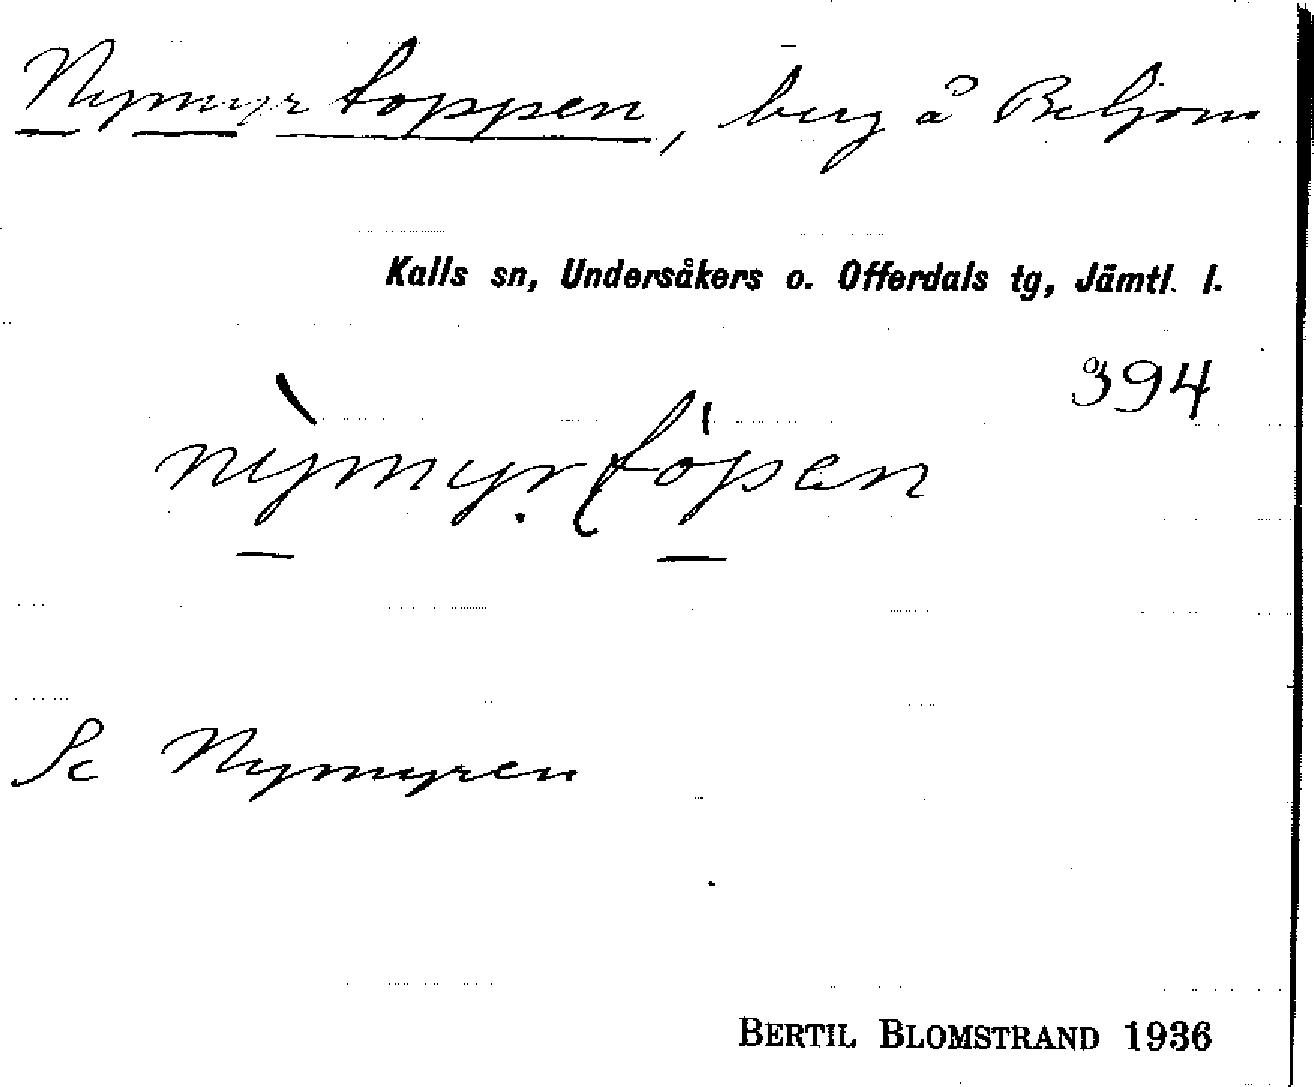 Nymyrtoppen, berg å Beljom
Kalls sn, Undersåkers o. Offerdals tg, Jämtl. l.
394
nỳmyrtópen
Se Nymyren
BERTIL BLOMSTRAND 1936